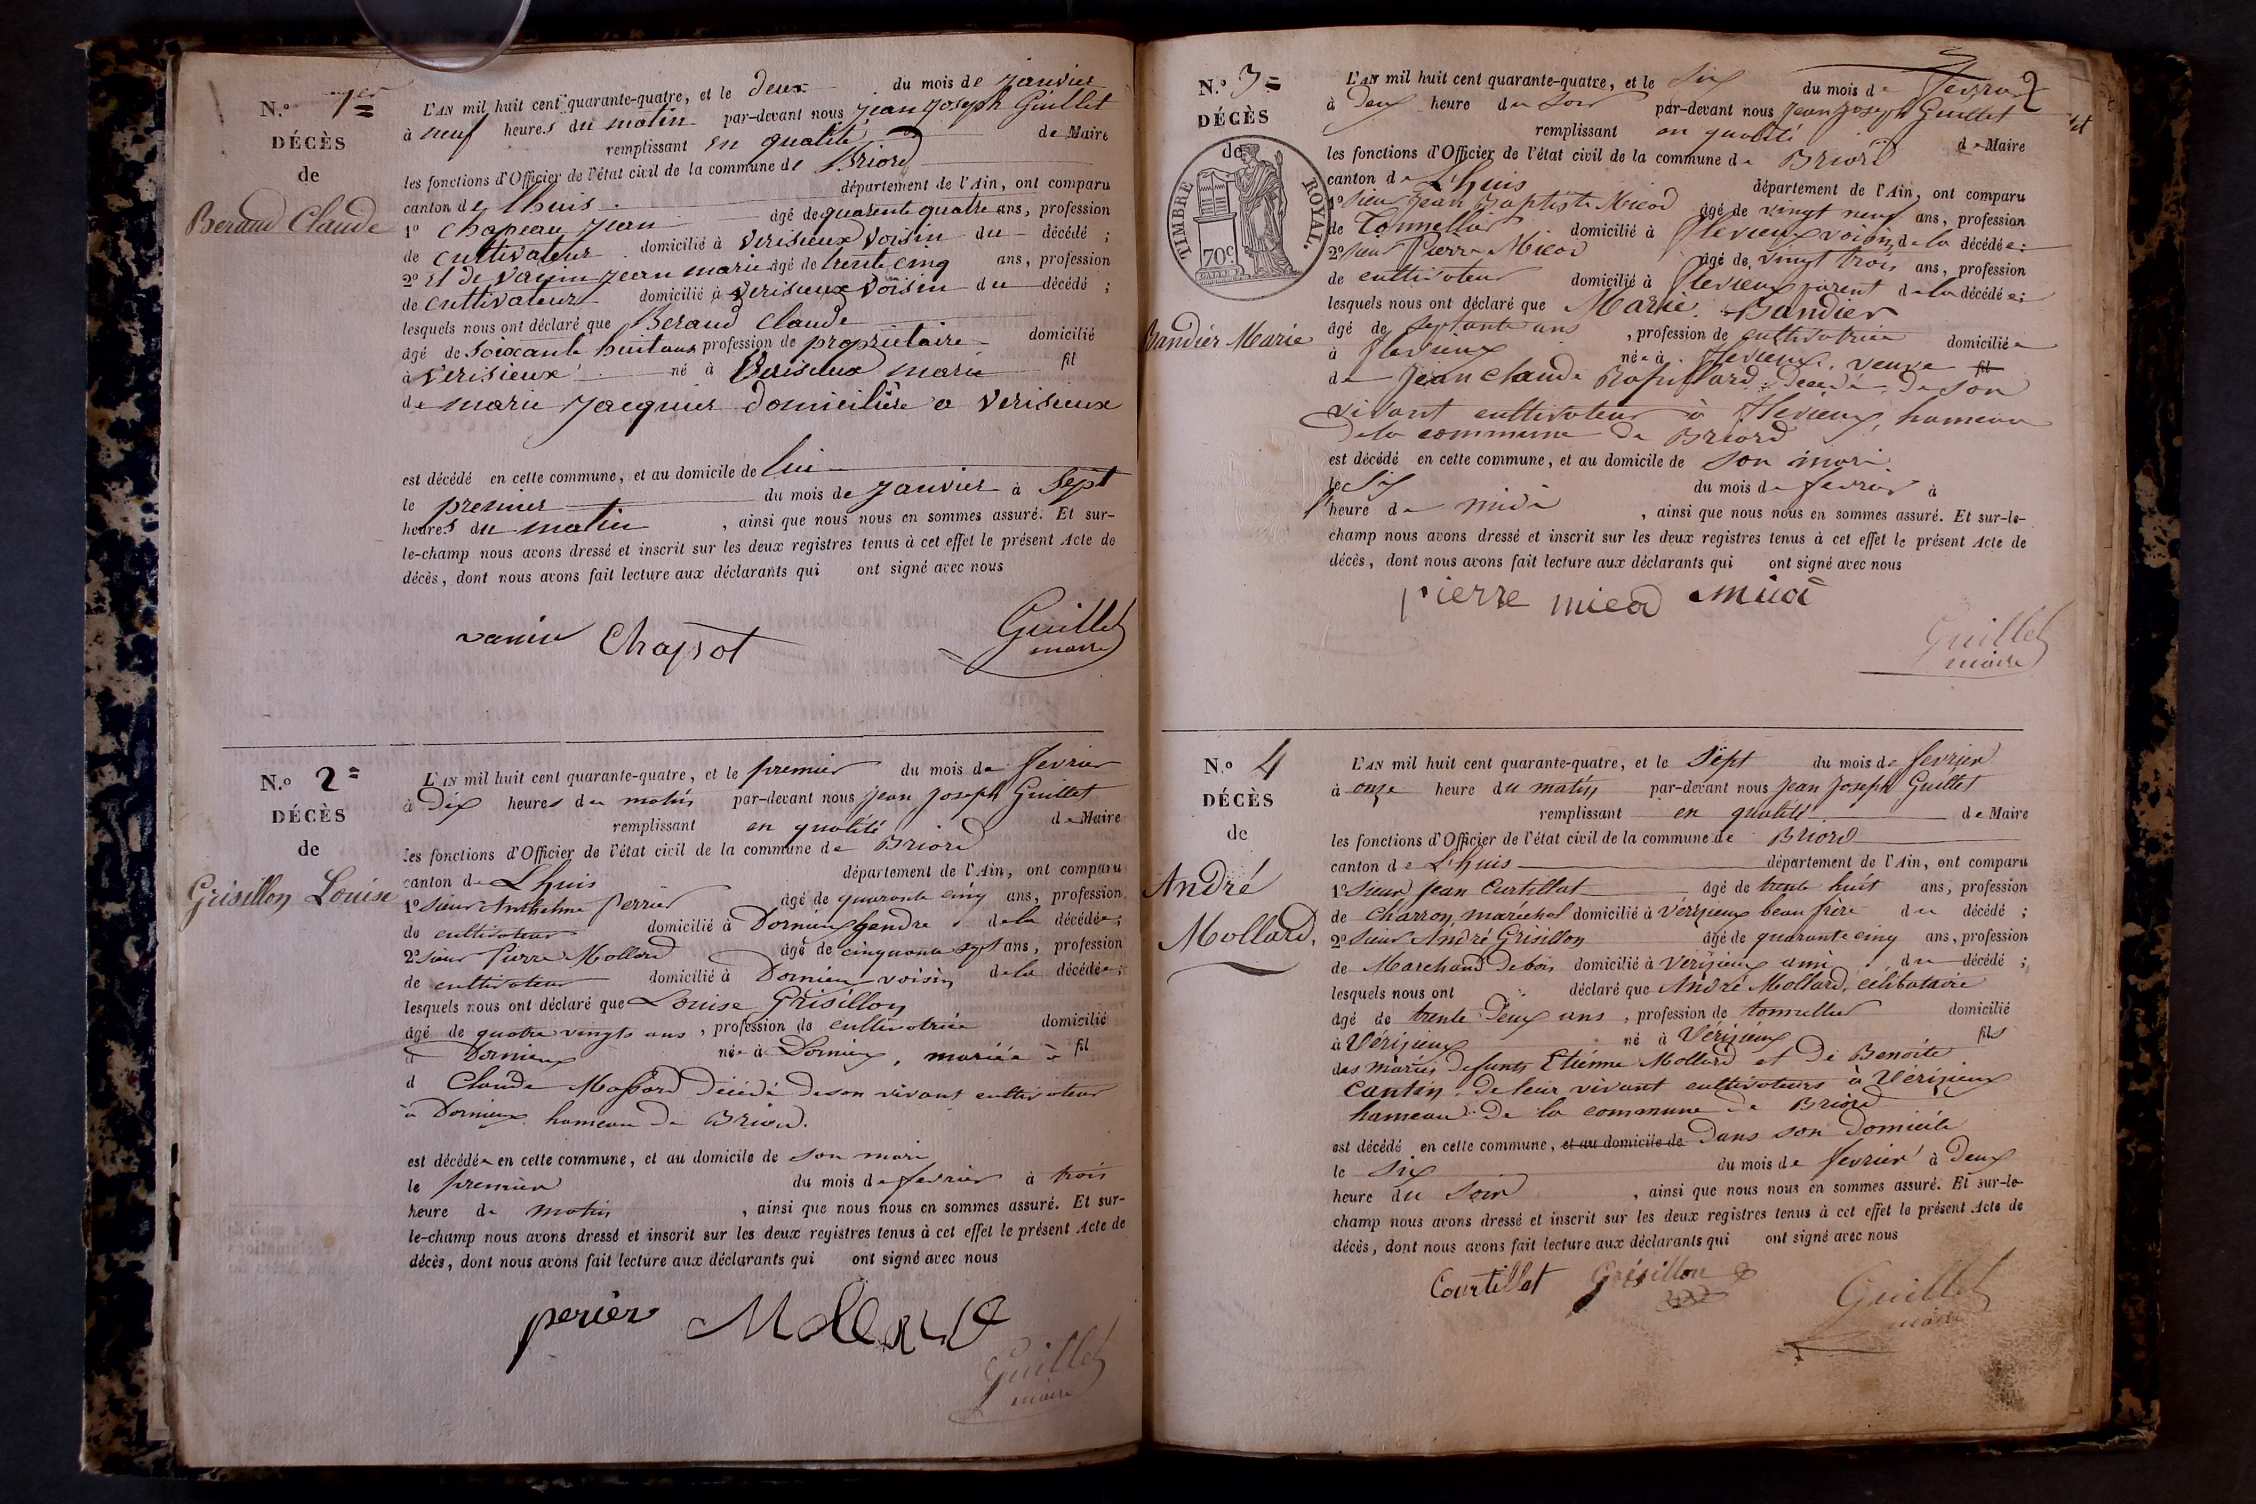 N.º 1er
DÉCÈS
de
Beraud Claude
L'AN mil huit cent quarante-quatre, et le deux du mois de janvier
à neuf heures du matin par-devant nous jean joseph Guillet
remplissant en qualité de Maire
les fonctions d'Officier de l'état civil de la commune de Briord
canton de lhuis département de l'Ain, ont comparu
1º chapeau jean âgé de quarente quatre ans, profession
de cultivateur domicilié à verisieux voisin du décédé ;
2º Et de vanin jean marie âgé de trente cinq ans, profession
de cultivateur domicilié à verisieux voisin du décédé ;
lesquels nous ont déclaré que Beraud claude
âgé de soixante huit ans profession de proprietaire domicilié
à verisieux né à Verisieux marié fil
de marie jacquier domiciliére a verisieux
est décédé en cette commune, et au domicile de lui
le premier du mois de janvier à sept
heures du matin , ainsi que nous nous en sommes assuré. Et sur-
le-champ nous avons dressé et inscrit sur les deux registres tenus à cet effet le présent Acte de
décès, dont nous avons fait lecture aux déclarants qui ont signé avec nous
vanin Chapot Guillet
maire
N.º 2=
DÉCÈS
de
Grisillon Louise
L'AN mil huit cent quarante-quatre, et le premier du mois de fevrier
à Dix heures du matin par-devant nous jean joseph Guillet
remplissant en qualité de Maire
les fonctions d'Officier de l'état civil de la commune de Briord
canton de Lhuis département de l'Ain, ont comparu
1º sieur Anthelme Perrier âgé de quarante cinq ans, profession
de cultivateur domicilié à Dornieux gendre de la décédée ;
2º sieur Pierre Mollard âgé de cinquante sept ans, profession
de cultivateur domicilié à Dornieux voisin de la décédée ;
lesquels nous ont déclaré que Louise Grisillon
âgé de quatre vingts ans , profession de cultivatrice domicilié
à Dornieux née à Dornieux, mariée à fil
d Claude Décédé de son vivant cultivateur
à Dornieux hameau de Briord.
est décédée en cette commune, et au domicile de son mari
le premier du mois de fevrier à trois
heure de matin , ainsi que nous nous en sommes assuré. Et sur-
le-champ nous avons dressé et inscrit sur les deux registres tenus à cet effet le présent Acte de
décès, dont nous avons fait lecture aux déclarants qui ont signé avec nous
perier Mollard
Guillet
maire
2
N.º 3=
DÉCÈS
de
TIMBRE ROYAL.
70 c
Bandier Marie
L'AN mil huit cent quarante-quatre, et le Six du mois de fevrier
à Deux heure du soir par-devant nous jean joseph Guillet
remplissant en qualité de Maire
les fonctions d'Officier de l'état civil de la commune de Briord
canton de L'huis département de l'Ain, ont comparu
1º sieur Jean Baptiste Micod âgé de vingt neuf ans, profession
de Tonnellier domicilié à flevieux voisin de la décédée ;
2º sieur Pierre Micod âgé de vingt trois ans, profession
de cultivateur domicilié à flevieux parent de la décédée ;
lesquels nous ont déclaré que Marie Bandier
âgé de septante ans , profession de cultivatrice domiciliée
à flevieux née à flevieux veuve fil
de Jean Claude décédé de son
vivant cultivateur à flevieux, hameau
de la commune de Briord
est décédé en cette commune, et au domicile de son mari
le Six du mois de fevrier à
heure de midi , ainsi que nous nous en sommes assuré. Et sur-le-
champ nous avons dressé et inscrit sur les deux registres tenus à cet effet le présent Acte de
décès, dont nous avons fait lecture aux déclarants qui ont signé avec nous
pierre micod Micod
Guillet
maire
N.º 4
DÉCÈS
de
André
Mollard,
L'AN mil huit cent quarante-quatre, et le Sept du mois de fevrier
à onze heure du matin par-devant nous Jean Joseph Guillet
remplissant en qualité de Maire
les fonctions d'Officier de l'état civil de la commune de Briord
canton de L'huis département de l'Ain, ont comparu
1º sieur Jean Curtillat âgé de trente huit ans, profession
de charron, maréchal domicilié à Vérizieux beau frère du décédé ;
2º sieur André Grisillon âgé de quarante cinq ans, profession
de Marchand de bois domicilié à Vérizieux ami du décédé ;
lesquels nous ont déclaré que André Mollard, célibataire
âgé de trente Deux ans , profession de tonnellier domicilié
à Vérizieux né à Vérizieux fils
des mariés defunts Etiénne Mollard et de Benoite
Cantin de leur vivant cultivateurs à Vérizieux
hameau de la commune de Briord
est décédé en cette commune, et au domicile de Dans son Domicile
le Six du mois de fevrier à Deux
heure du Soir , ainsi que nous nous en sommes assuré. Et sur-le-
champ nous avons dressé et inscrit sur les deux registres tenus à cet effet le présent Acte de
décès, dont nous avons fait lecture aux déclarants qui ont signé avec nous
Courtillat Grésillon Guillet
maire